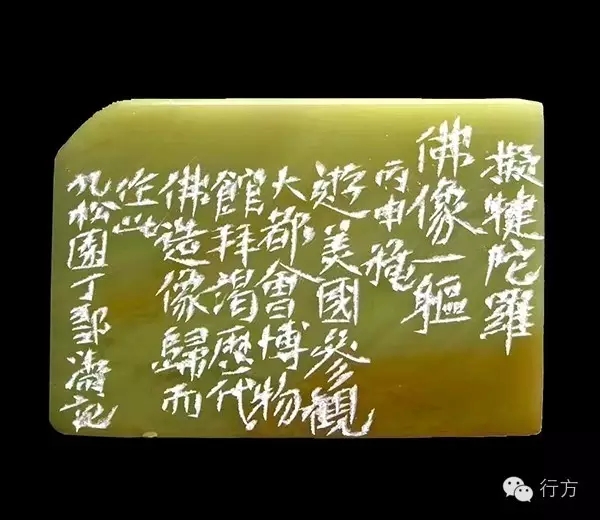 擬犍陀羅
佛像一軀
丙申穐
遊美國參觀
大都會博物
館拜謁歷代
佛造像歸而
作此
九松園丁鄒濤記
行方